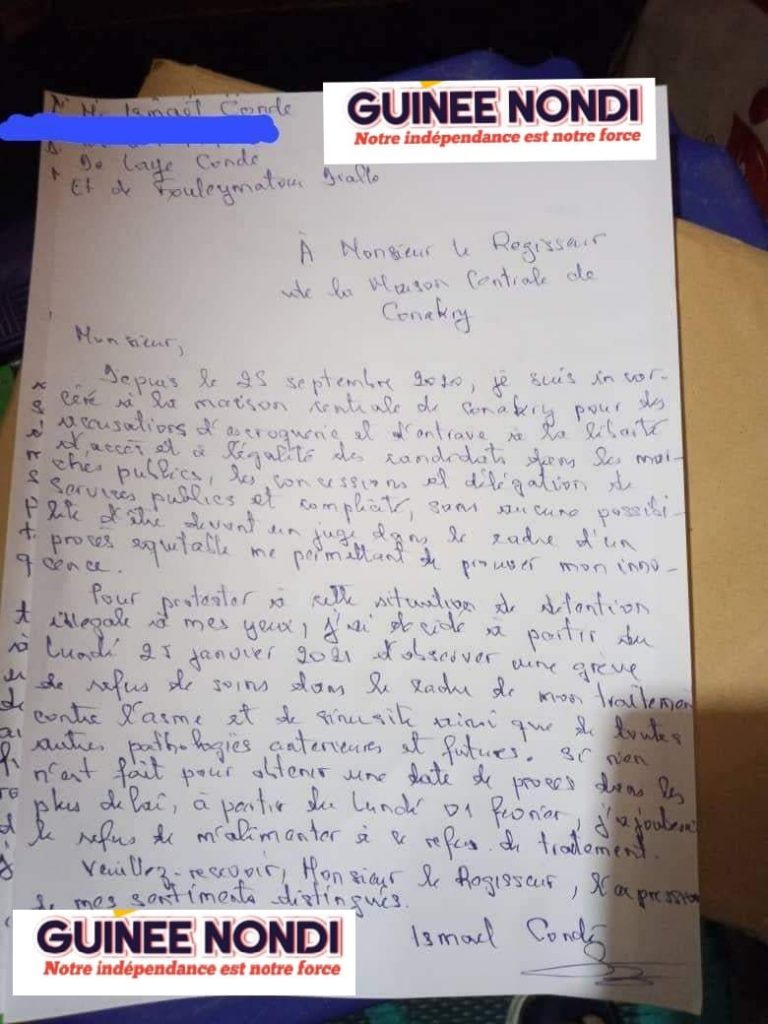 GUINÉE NONDI
Notre indépendance est notre force
Mr Ismaël Conde
De Laye Conde
Et de Souleymatou Diallo
À Monsieur le Regisseur
de la Maison Centrale de
Conakry
Monsieur,
Depuis le 25 septembre 2020, je suis incar-
céré à la maison centrale de Conakry pour des
accusations d'escroquerie et d'entrave à la liberté
d'accès et à l'égalité des candidats dans les mar-
chés publics, les concessions et délégation de
services publics et complicité, sans aucune possibi-
lité d'être devant un juge dans le cadre d'un
procès equitable me permettant de prouver mon inno-
cence.
Pour protester à cette situation de détention
illegale à mes yeux, j'ai décidé à partir du
Lundi 25 janvier 2021 d'observer une grève
de refus de soins dans le cadre de mon traitement
contre l'asme et de sinusite ainsi que de toutes
autres pathologies anterieures et futures. Si rien
n'est fait pour obtenir une date de procès dans les
plus delai, à partir du Lundi 01 février, j'ajouterai
le refus de m'alimenter à ce refus de traitement.
Veuillez recevoir, Monsieur le Regisseur, l'expression
de mes sentiments distingués.
Ismael Condé
GUINÉE NONDI
Notre indépendance est notre force